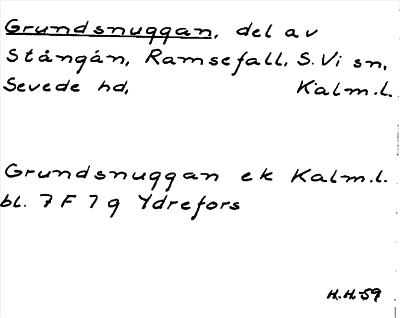 Grundsnuggan, del av
Stångån, Ramsefall, S. Vi sn,
Sevede hd, Kalm.l.
Grundsnuggan ek Kalm.l.
bl. 7 F 7 g Ydrefors
H.H.-59